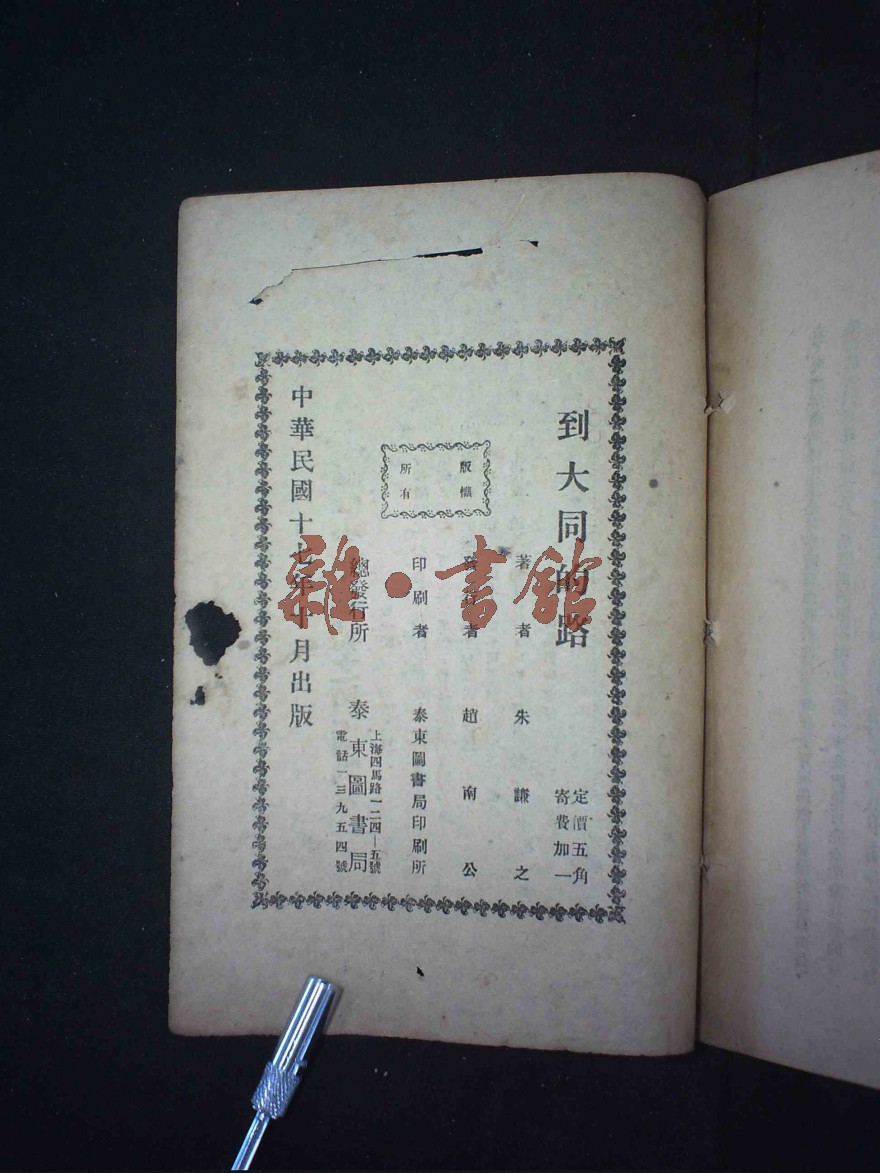 到大同的路
定價五角
寄費加一
著者 朱謙之
發行者 趙南公
版權
所有
印刷者 泰東圖書局印刷所
上海四馬路一二四—五號
總發行所 泰東圖書局
電話一三九五四號
中華民國十七年十月出版
雜·書館